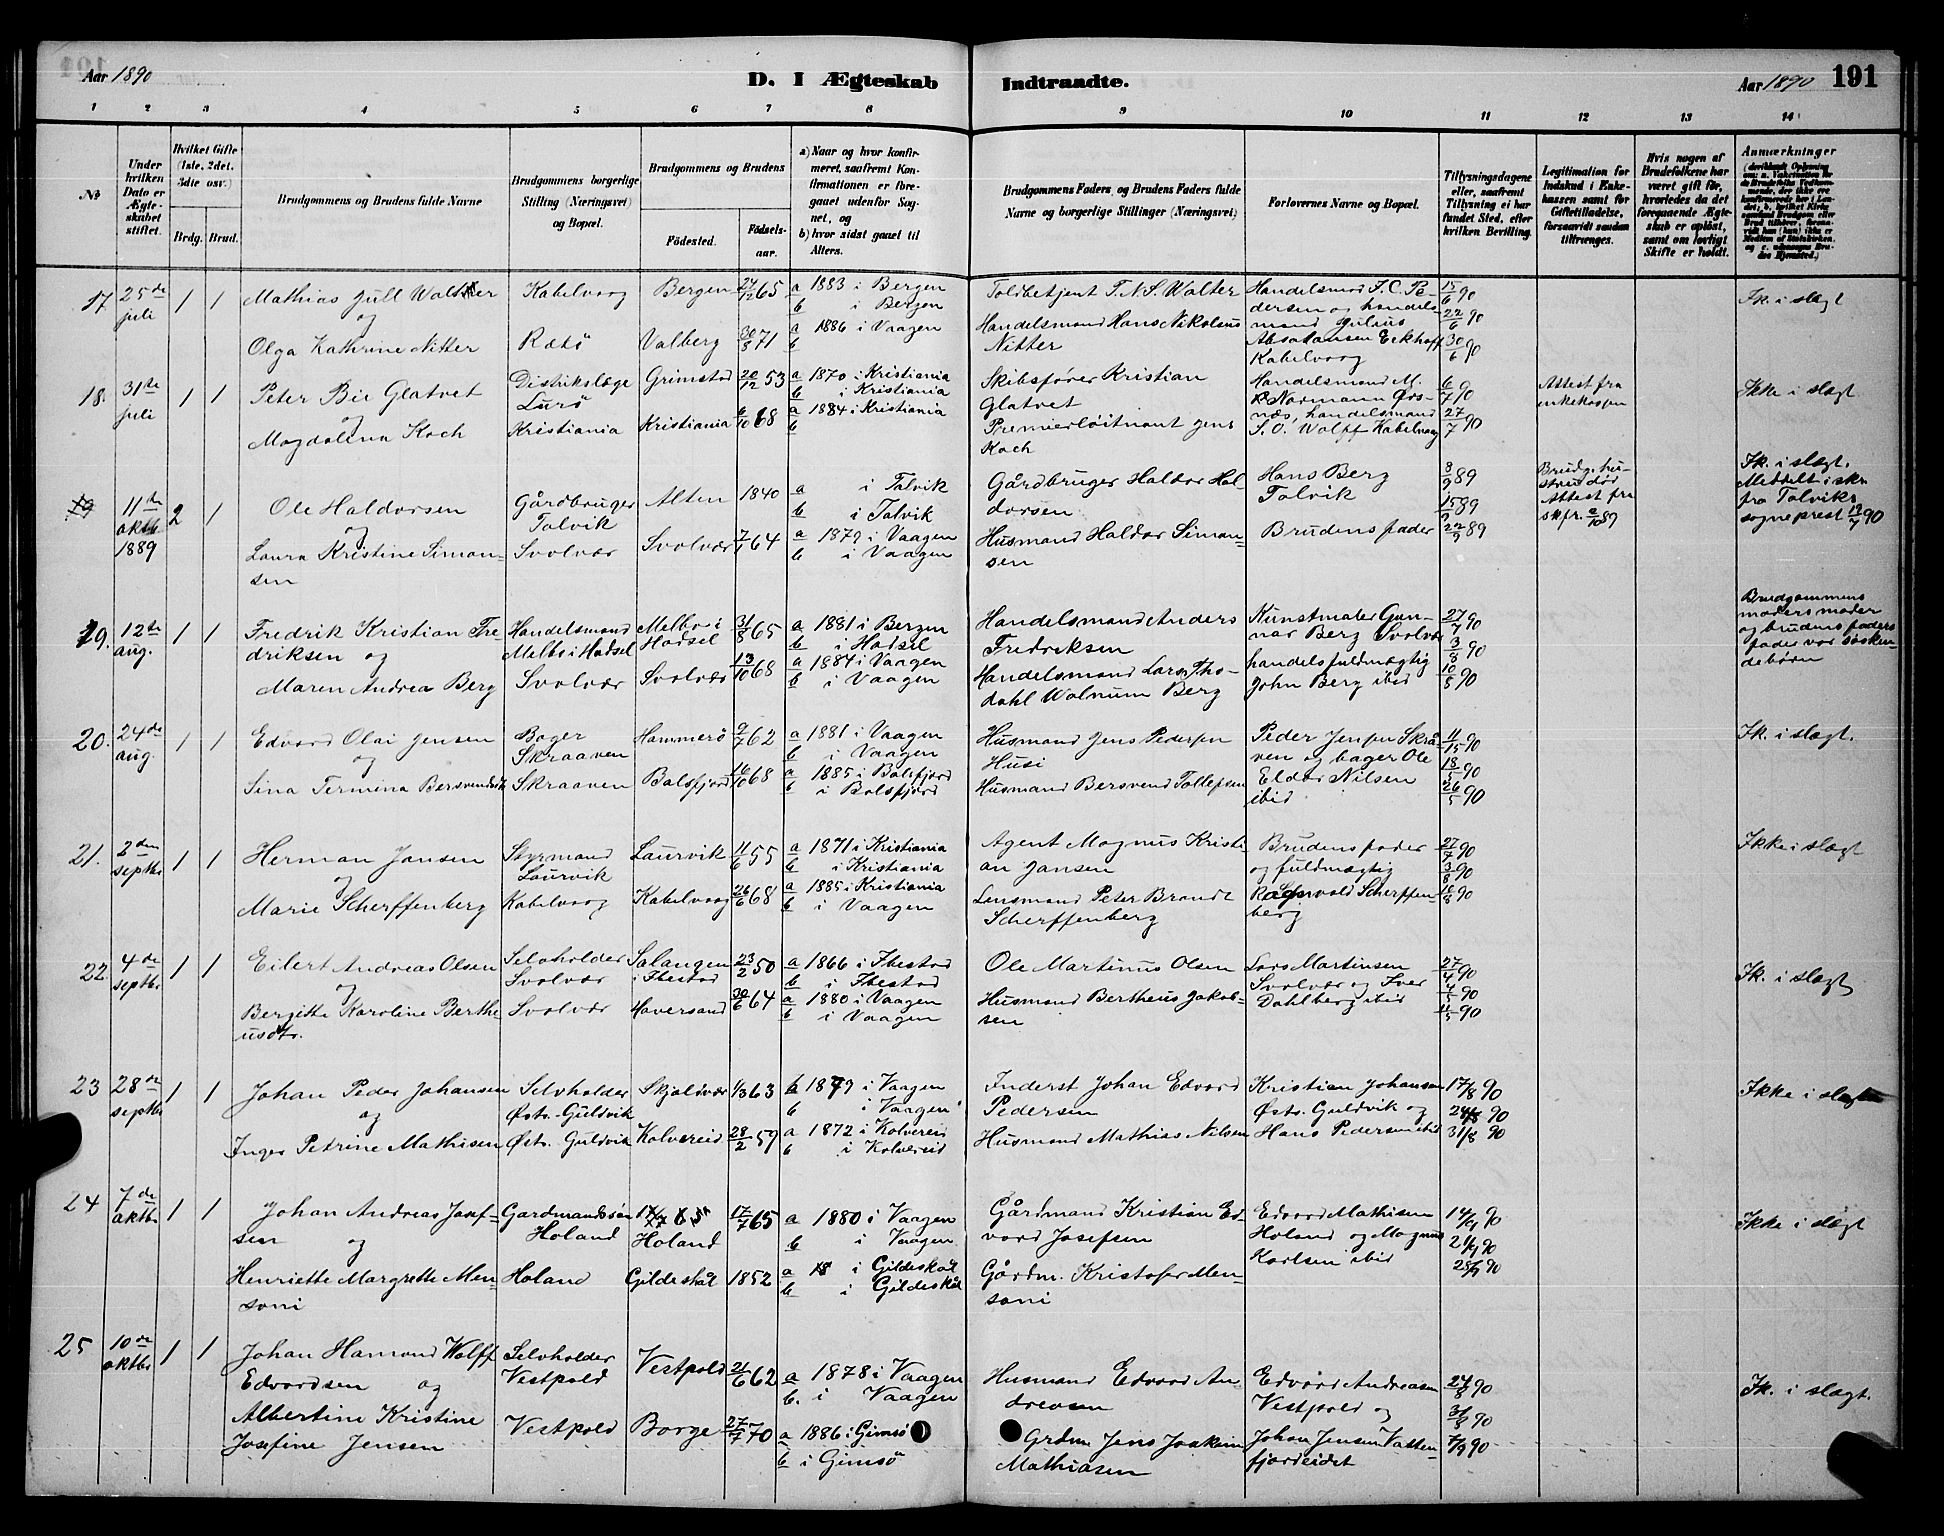 Aar 1890
D. I Ægteskab Indtraadte.
Aar 1890 191
1 2 3 4 5 6 7 8 9 10 11 12 13 14
No
Under hvilken Dato er Ægteskabet stiftet.
Hvilket Gifte (1ste, 2det, 3die osv.)
Brdg. Brud.
Brudgommens og Brudens fulde Navne
Brudgommens borgerlige Stilling (Næringsvei) og Bopæl.
Brudgommens og Brudens
Födested.
Födselsaar.
a) Naar og hvor konfirmeret, saafremt Konfirmationen er foregaaet udenfor Sognet, og
b) hvor sidst gaaet til Alters.
Brudgommens Faders og Brudens Faders fulde Navne og borgerlige Stillinger (Næringsvei)
Forlovernes Navne og Bopæl.
Tillysningsdagene eller, saafremt Tillysning ei har fundet Sted, efter hvilken Bevilling.
Legitimation for Indskud i Enkekassen samt for Giftetilladelse, forsaavidt saadan tiltrænges.
Hvis nogen af Brudefolkene har været gift för, hvorledes da det foregaaende Ægteskab er oplöst, samt om lovligt Skifte er holdt.
Anmærkninger
17 25de juli 1 1 Mathias Jull Walther Kabelvaag Bergen 24/12 65 a 1883 i Bergen b i Bergen
Toldbetjent T.N.S. Walter Handelsmnd J.C. Pedersen og handelsmand Julius Absalonsen Eckhoff Kabelvaag 15/6 90 22/6 90 30/6 90 Ik. i slægt
og
Olga Kathrine Nitter Rætö Valberg 30/3 71 a 1886 i Vaagen b
Handelsmand Hans Nikolaus Nitter
18. 31te juli 1 1 Peter Bie Glatvet Distrikslæge Lurö Grimstad 20/12 53 a 1870 i Kristiania b i Kristiania
Skibsförer Kristian Glatvet Handelsmand M. Normann Örsnæs, handelsmand S.O. Wolff Kabelvaag 6/7 90 27/7 90 Attest fra enkekassen Ikke i slægt
og
Magdalena Koch Kristiania Kristiania 6/10 68 a 1884 i Kristiania b
Premierlöitnant Jens Koch
19 11te oktbr 1889 2 1 Ole Haldorsen Gårdbruger Talvik Alten 1840 a i Talvik b i Talvik
Gårdbruger Haldor Haldorsen Hans Berg Talvik 8/9 89 15/9 89 22/9 89 Brudg. hustru död Attest fra skfr. 2/10 89 Ik. i slægt. Meddelt i skr. fra Talviks sogneprest 19/7 90
og
Laura Kristine Simonsen Svolvær Svolvær 7/1 64 a 1879 i Vaagen b i Vaagen
Husmand Haldor Simonsen Brudens fader
19. 12te aug. 1 1 Fredrik Kristian Fredriksen og Handelsmand Melbo i Hadsel Melbo i Hadsel 31/8 65 a 1881 i Bergen b i Hadsel
Handelsmand Anders Fredriksen Kunstmaler Gunnar Berg Svolvær 27/7 90 3/8 90 10/8 90 Brudgommens moders moder og brudens faders fader var söskendebörn
Maren Andrea Berg Svolvær Svolvær 13/10 68 a 1884 i Vaagen b i Vaagen
Handelsmand Lars Thodahl Walnum Berg handelsfuldmægtig John Berg ibid
20. 24de aug. 1 1 Edvard Olai Jensen Bager Skraaven Hammerö 9/7 62 a 1881 i Vaagen b i Vaagen
Husmand Jens Pedersen Husi Peder Jensen Skråven og bager Ole Eldor Nilsen ibid 11/5 90 18/5 90 26/5 90 Ik. i slægt.
og
Sina Termina Bersvendsdtr Skraaven Balsfjord 16/10 68 a 1885 i Balsfjord b i Balsfjord
Husmand Bersvend Tollefsen
21. 2den septbr 1 1 Herman Jansen Styrmand Laurvik Laurvik 11/6 55 a 1871 i Kristiania b i Kristiania
Agent Magnus Kristian Jansen Brudens fader og fuldmægtig Ragnvald Scherffenberg 27/7 90 3/8 90 10/8 90 Ikke i slægt
og
Marie Scherffenberg Kabelvaag Kabelvaag 26/6 68 a 1885 i Kristiania b i Vaagen
Lensmand Peter Brandt Scherffenberg
22. 4de septbr 1 1 Eilert Andreas Olsen Selvholder Svolvær Salangen i Ibestad 23/2 50 a 1866 i Ibestad b i Ibestad
Ole Martinus Olsen Lars Martinsen Svolvær og Iver Dahlberg ibid 27/4 90 4/5 90 11/5 90 Ik. i slægt
og
Bergitte Karoline Bertheusdtr. Svolvær Haversand 30/6 64 a 1880 i Vaagen b i Vaagen
Husmand Bertheus Jakobsen
23 28de septbr 1 1 Johan Peder Johansen Selvholder Östr. Guldvik Skjoldvær 1/3 63 b 1879 i Vaagen b i Vaagen
Inderst Johan Edvard Pedersen Kristian Johansen Östr. Guldvik og Hans Pedersen ibid 17/8 90 24/8 90 31/8 90 Ikke i slægt
og
Inger Petrine Mathisen Östr. Guldvik Kolvereid 28/2 59 a 1872 i Kolvereid b i Kolvereid
Husmand Mathias Nilsen
24 7de oktbr 1 1 Johan Andreas Josefsen og Gaardmandssön Holand Holand 17/7 65 a 1880 i Vaagen b i Vaagen
Gårdmand Kristian Edvard Josefsen Edvard Mathisen Holand og Magnus Karlsen ibid 14/9 90 21/9 90 28/9 90 Ikke i slægt
Henriette Margrette Mensoni Holand Gildeskål 1852 a 18 i Gildeskål b i Gildeskål
Gårdm. Kristofer Mensoni
25 10de oktbr 1 1 Johan Hamond Wolff Edvardsen og Selvholder Vestpold Vestpold 21/6 62 a 1878 i Vaagen b. i Vaagen
Husmand Edvard Andreasen Edvard Andreasen Vestpold og Johan Jensen Vattenfjordeidet 24/8 90 31/8 90 7/9 90 Ik. i slægt.
Albertine Kristine Josefine Jensen Vestpold Borge 27/7 70 a 1886 i Gimsö b i Gimsö
Grdm. Jens Joakim Mathiasen